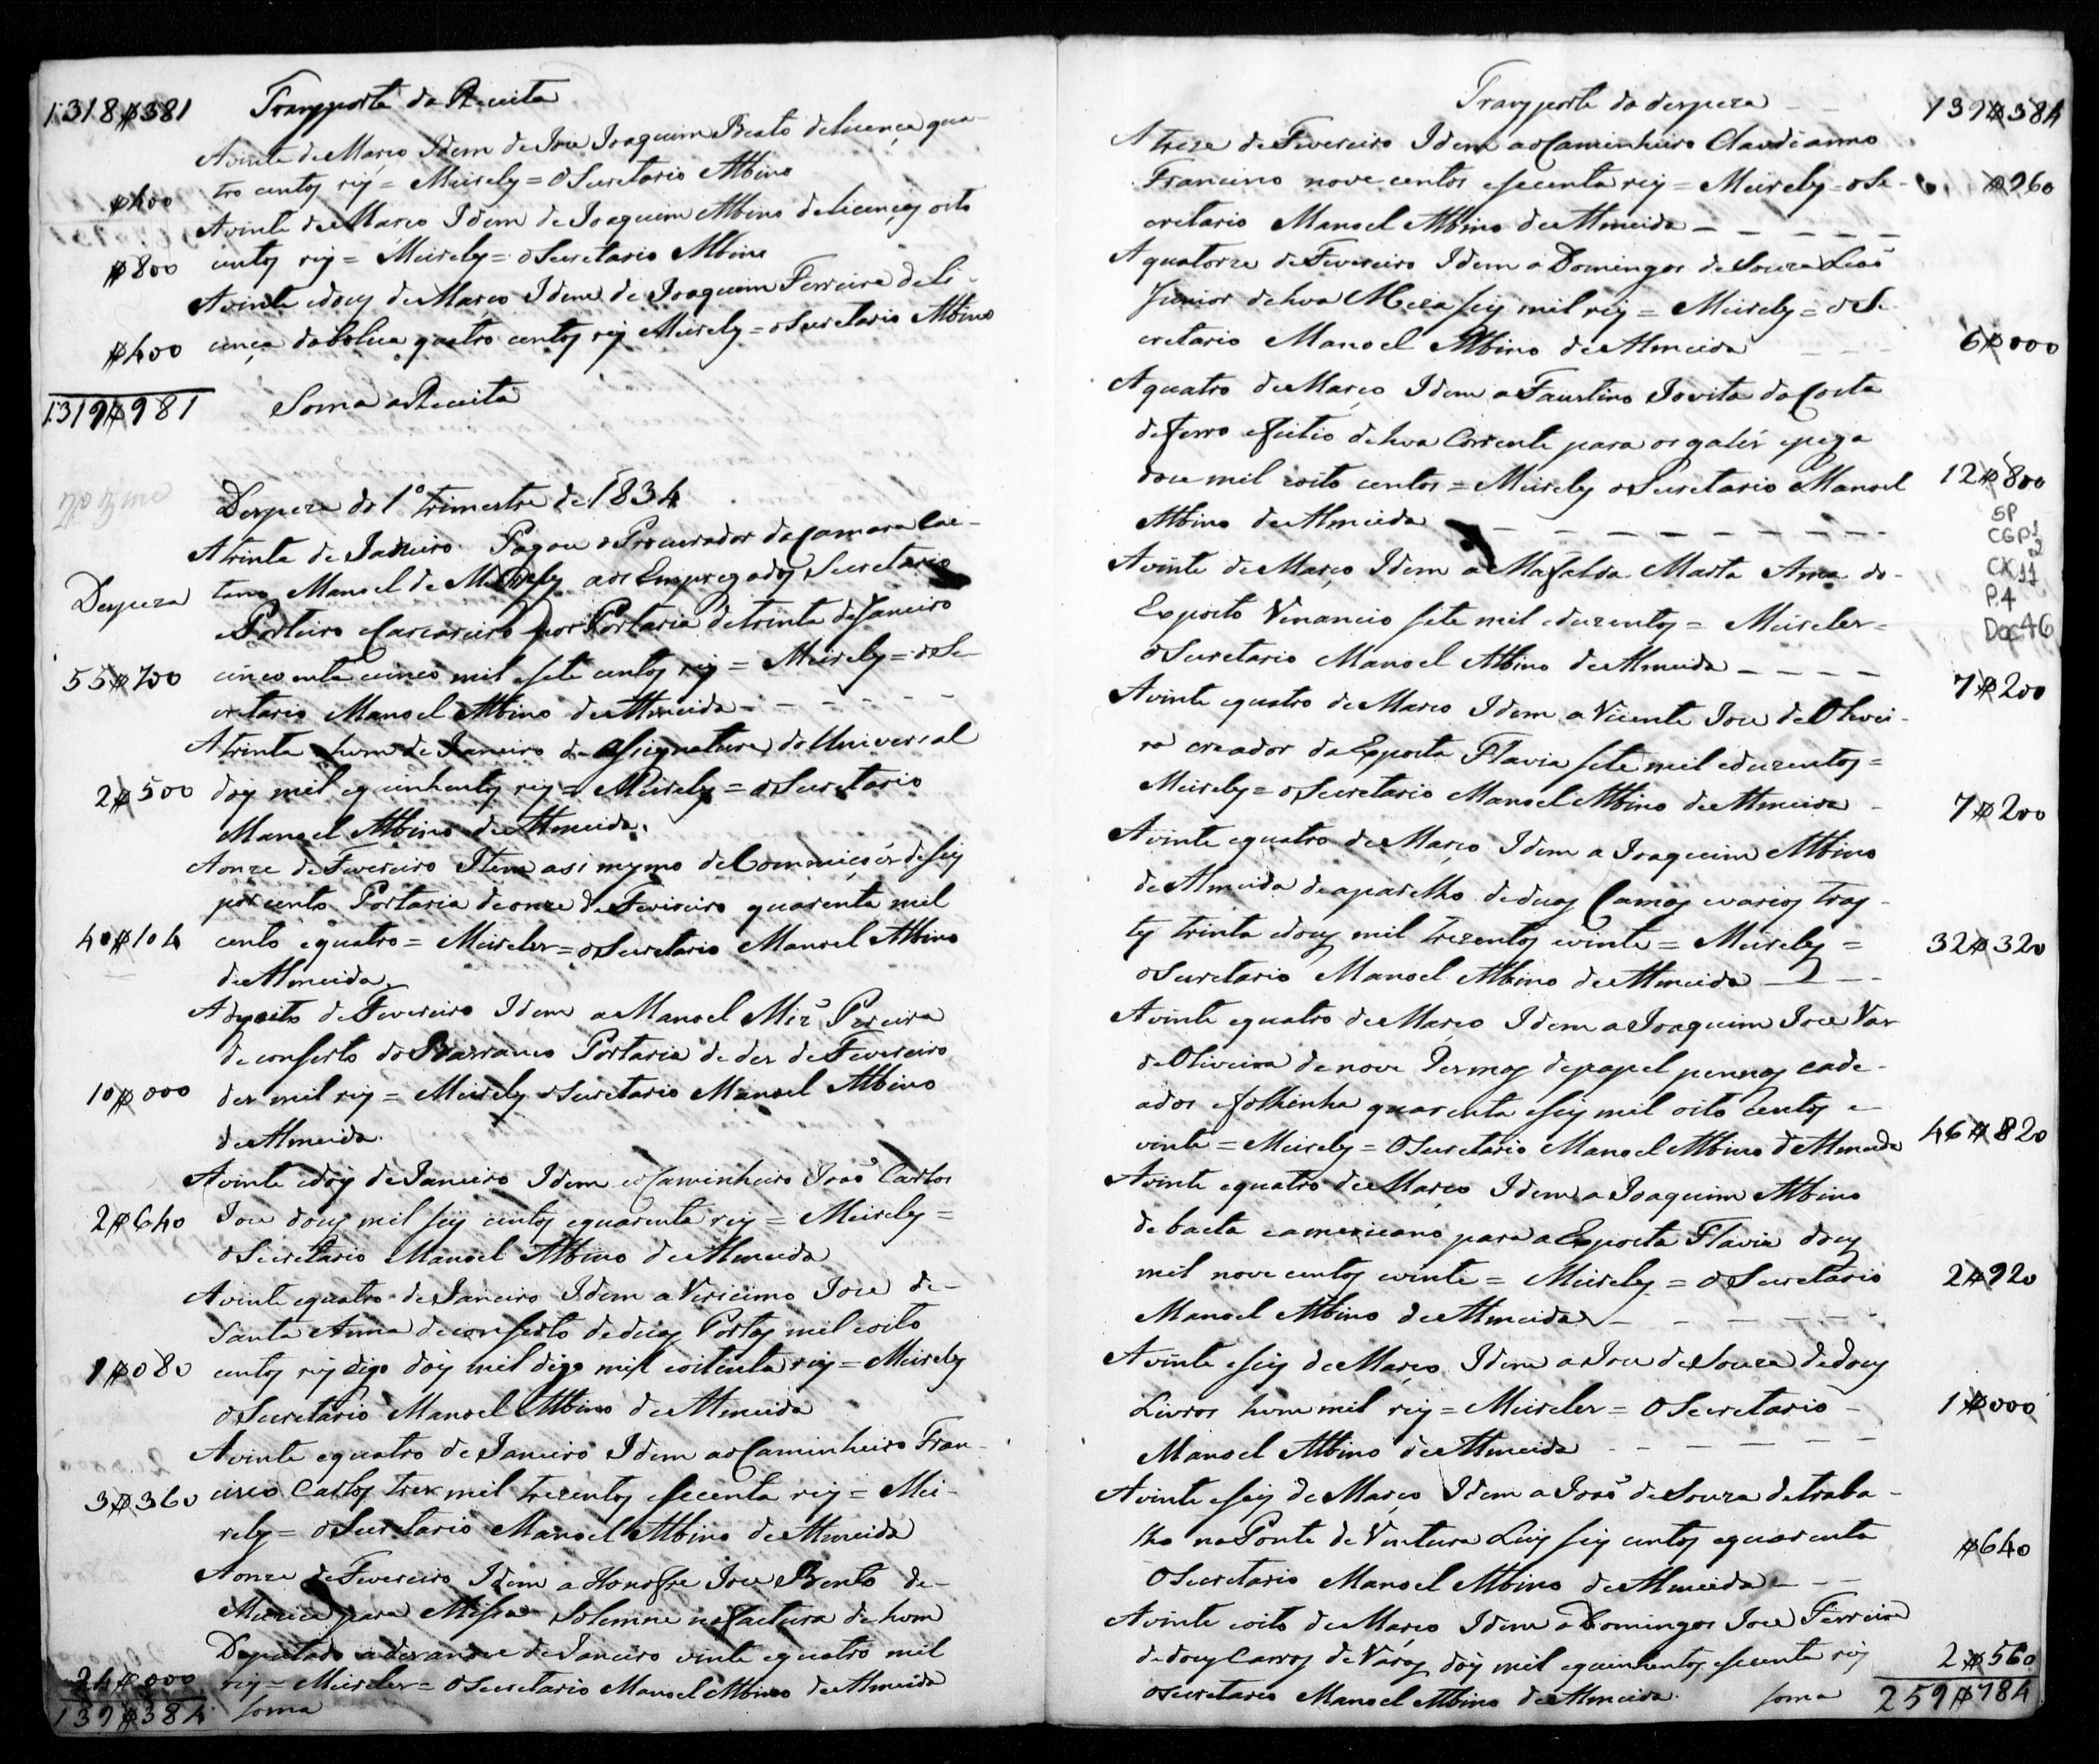 1318$381 Transporte da Receita
A vinte de Março Idem de Joze Joaquim Beato de licença qua-
$400 tro centos reis = Meireles = O Secretario Albino
A vinte de Março Idem de Joaquim Albino de licenças oito
$800 centos reis = Meireles = o Secretario Albino
A vinte e dous de Março Idem de Joaquim Ferreira de li-
$400 cença da bolica quatro centos reis Meireles = o Secretario Albino
1319$981 Soma a Receita
Despeza do 1º trimestre de 1834
A trinta de Janeiro Pagou o Procurador da Camara Cae-
Despeza tano Manoel de Meireles aos Empregados Secretario
e Porteiro e Carcareiro por Portaria de trinta de Janeiro
55$700 cincoenta e cinco mil e sete centos reis = Meireles = o Se-
cretario Manoel Albino de Almeida - - - - -
A trinta e hum de Janeiro da Asignatura do Universal
2$500 dois mil e quinhentos reis = Meireles = o Secretario
Manoel Albino de Almeida.
A onze de Fevereiro Item a si mesmo de Commições de seis
por cento Portaria de onze de Fevireiro quarenta mil
40$104 cento e quatro = Meireles = o Secretario Manoel Albino
de Almeida
A desoito de Fevereiro Idem a Manoel Miz Pereira
de conserto do Barranco Portaria de des de Fevereiro
10$000 des mil reis = Meireles o Secretario Manoel Albino
de Almeida.
A vinte e dois de Janeiro Idem ao Caminheiro João Carlos
2$640 Joze dous mil seis centos e quarenta reis = Meireles =
o Secretario Manoel Albino de Almeida
A vinte e quatro de Janeiro Idem a Viricimo Joze de-
Santa Anna de conserto de duas Portas mil e oito
1$080 centos reis digo dois mil digo mil e oitenta reis = Meireles
o Secretario Manoel Albino de Almeida
A vinte e quatro de Janeiro Idem ao Caminheiro Fran-
3$360 cisco Carlos trez mil trezentos e secenta reis = Mei-
reles = o Secretario Manoel Albino de Almeida
A onze de Fevereiro Idem a Honofre Joze Bento de-
Muzica para Missa Solemne na factura de hum
Deputado a dezanove de Janeiro vinte e quatro mil
24$000 reis = Meireles = o Secretario Manoel Albino de Almeida
139$384 soma
Transporte da despeza - - 139$384
A treze de Fevereiro Idem ao Caminheiro Claudianno
Francino nove centos e secenta reis = Meireles = o Se- $960
cretario Manoel Albino de Almeida - - - - -
A quatorze de Fevereiro Idem a Domingos de Souza Leão
Junior de hua Meza seis mil reis = Meireles = o Se-
cretario Manoel Albino de Almeida - - - 6$000
A quatro de Março Idem a Faustino Jovita da Costa
de ferro e feitio de hua Corrente para os galés e pega
doze mil e oito centos = Meireles o Secretario Manoel 12$800
Albino de Almeida - - - - - - - - -
SP
CGP1
.2
CX 11
P.4
Doc 46
A vinte de Março Idem a Mafalda Marta Ama do-
Exposto Venancio sete mil e duzentos = Meireles =
o Secretario Manoel Albino de Almeida - - - - 7$200
A vinte e quatro de Março Idem a Vicente Joze de Olivei-
ra creador da Exposta Flavia sete mil e duzentos =
Meireles = o Secretario Manoel Albino de Almeida - 7$200
A vinte e quatro de Março Idem a Joaquim Albino
de Almeida de aparelho de duas Camas e varios tras-
tes trinta e dous mil trezentos e vinte = Meireles = 32$320
o Secretario Manoel Albino de Almeida - - -
A vinte e quatro de Março Idem a Joaquim Joze Vaz
de Oliveira de nove Resmas de papel pennas cade-
ados e folhinha quarenta e seis mil oito centos e
vinte = Meireles = O Secretario Manoel Albino de Almeida 46$820
A vinte e quatro de Março Idem a Joaquim Albino
de baeta e americano para a Exposta Flavia dous
mil nove centos e vinte = Meireles = o Secretario 2$920
Manoel Albino de Almeida - - - - - -
A vinte e seis de Março Idem a Joze de Souza de dous
Livros hum mil reis = Meireles = O Secretario - 1$000
Manoel Albino de Almeida - - - - - -
A vinte e seis de Março Idem a João de Souza de traba-
lho na Ponte de Ventura Luis seis centos e quarenta $640
O Secretario Manoel Albino de Almeida - - -
A vinte e oito de Março Idem a Domingos Joze Ferreira
de dous Carros de Varas dois mil e quinhentos e secenta reis 2$560
o secretario Manoel Albino de Almeida. soma 259$784